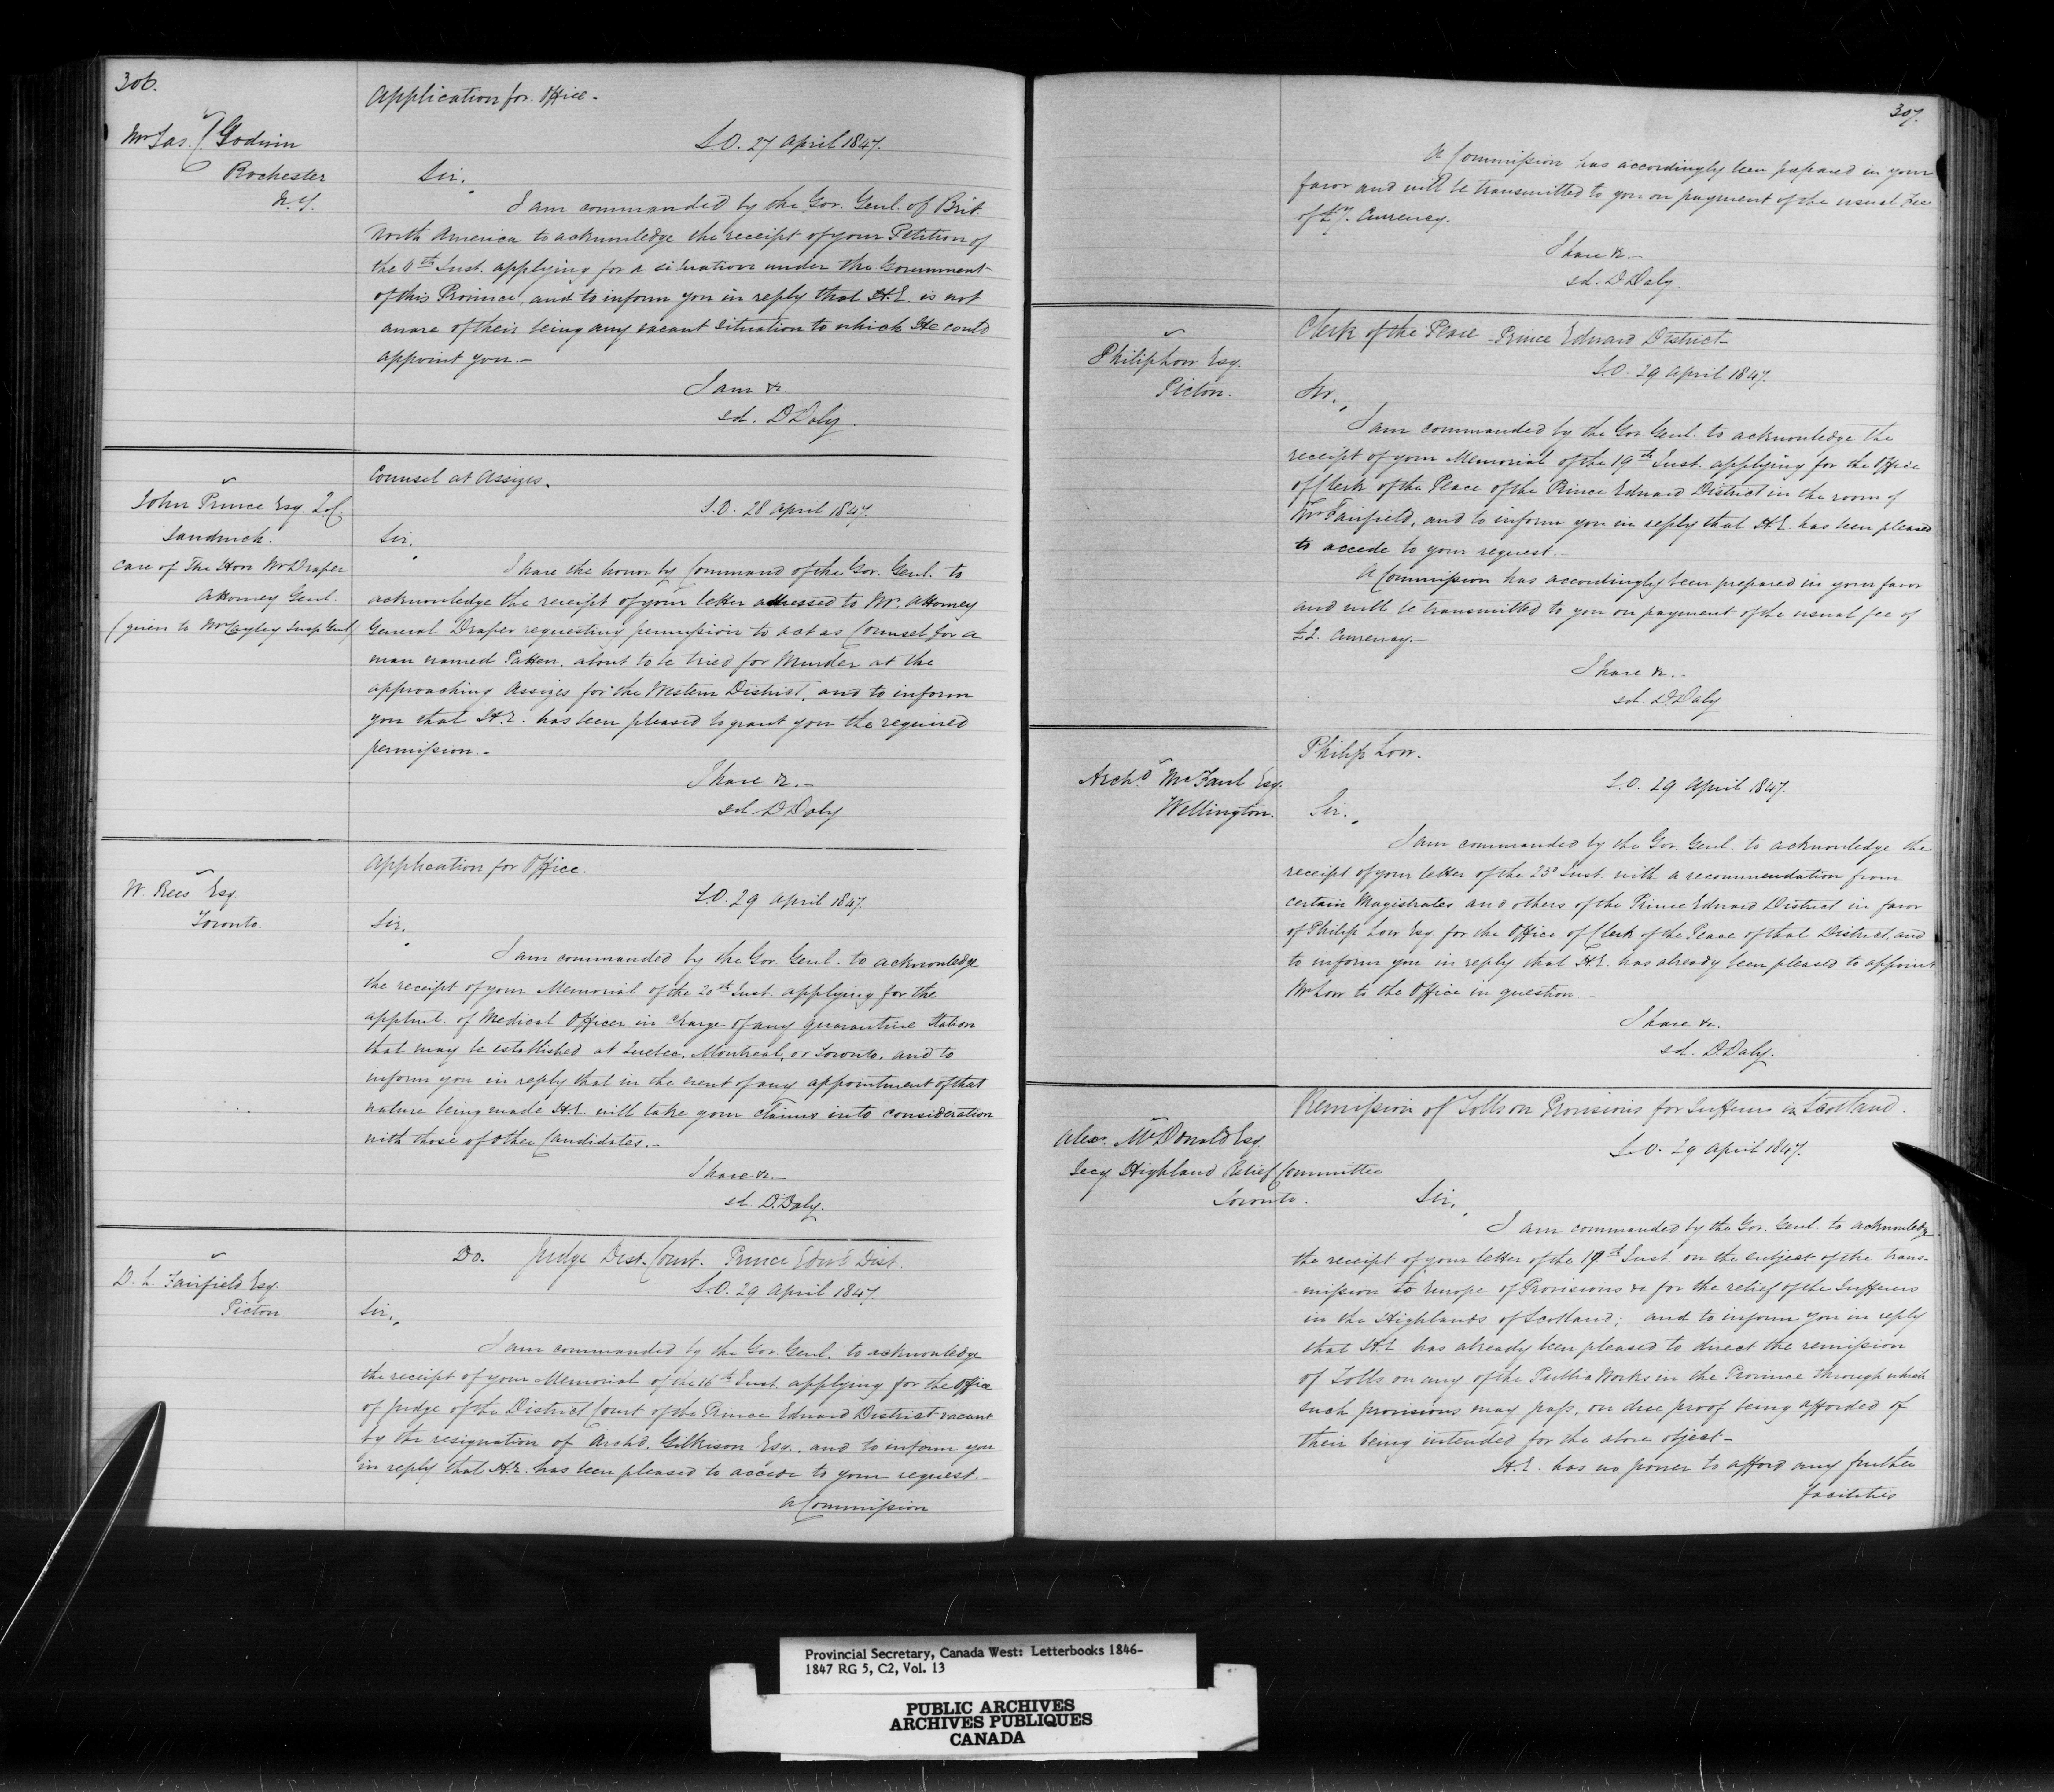 306.
Application for Office.
Mr Jas. Godwin
Rochester
N.Y.
S.O. 27 April 1847.
Sir,
I am commanded by the Gov. Genl. of Brit
North America to acknowledge the receipt of your Petition of
the Inst. applying for a situation under the Government
of this Province, and to inform you in reply that H.E. is not
aware of their being any vacant situation to which He could
appoint you.-
I am &c.
sd. D Daly.
Counsel at Assizes.
John Prince Esq. Q.C.
Sandwich.
care of The Hon Mr Draper
Attorney Genl.
(given to Mr Cayley Insp. Genl)
S.O. 28 April 1847.
Sir,
I have the honor by Command of the Gov. Genl. to
acknowledge the receipt of your letter addressed to Mr. Attorney
General Draper requesting permission to act as Counsel for a
man named Patten, about to be tried for Murder at the
approaching Assizes for the Western District, and to inform
you that H.E. has been pleased to grant you the required
permission.-
I have &c.-
sd D Daly
Application for Office.
W. Rees Esq
Toronto.
S.O. 29 April 1847.
Sir,
I am commanded by the Gov. Genl. to acknowledge
the receipt of your Memorial of the 20th Inst. applying for the
apptmt. of Medical Officer in charge of any quarantine Station
that may be established at Quebec, Montreal, or Toronto, and to
inform you in reply that in the event of any appointment of that
nature being made H.E. will take your claims into consideration
with those of other Candidates.-
I have &c.-
sd. D. Daly.
Do. Judge Dist. Court. Prince Edwd Dist.
D. L. Fairfield Esq.
Picton.
S.O. 29 April 1847.
Sir,
I am commanded by the Gov. Genl. to acknowledge
the receipt of your Memorial of the 16th Inst. applying for the Office
of Judge of the District Court of the Prince Edward District vacant
by the resignation of Archd. Gilkison Esq., and to inform you
in reply that H.E. has been pleased to accede to your request.-
A Commission
307.
A Commission has accordingly been prepared in your
favor and will be transmitted to you on payment of the usual Fee
of £7. Currency.
I have &c.-
sd. D Daly.
Clerk of the Peace - Prince Edward District-
Philip Low Esq.
Picton.
S.O. 29 April 1847.
Sir,
I am commanded by the Gov Genl. to acknowledge the
receipt of your Memorial of the 19th Inst. applying for the Office
of Clerk of the Peace of the Prince Edward District in the room of
Mr Fairfield, and to inform you in reply that H.E. has been pleased
to accede to your request.-
A Commission has accordingly been prepared in your favor
and will be transmitted to you on payment of the usual fee of
£2. Currency.-
I have &c.-
sd. D. Daly
Philip Low.
Archd. McFaul Esq.
Wellington.
S.O. 29 April 1847.
Sir,
I am commanded by the Gov. Genl. to acknowledge the
receipt of your letter of the 23d Inst. with a recommendation from
certain Magistrates and others of the Prince Edward District in favor
of Philip Low Esq. for the Office of Clerk of the Peace of that District, and
to inform you in reply that H.E. has already been pleased to appoint
Mr Low to the Office in question
I have &c.
sd. D. Daly.
Remission of Tolls on Provisions for Sufferers in Scotland.
Alexr. McDonald Esq
Secy Highland Relief Committee
Toronto.
S.O. 29 April 1847.
Sir,
I am commanded by the Gov. Genl. to acknowledge
the receipt of your letter of the 19th Inst. on the subject of the trans-
-mission to Europe of Provisions &c for the relief of the Sufferers
in the Highlands of Scotland; and to inform you in reply
that H.E. has already been pleased to direct the remission
of Tolls on any of the Public Works in the Province through which
such provisions may pass, on due proof being afforded of
their being intended for the above object-
H.E. has no power to afford any further
facilities
Provincial Secretary, Canada West: Letterbooks 1846-
1847 RG 5, C2, Vol. 13
PUBLIC ARCHIVES
ARCHIVES PUBLIQUES
CANADA